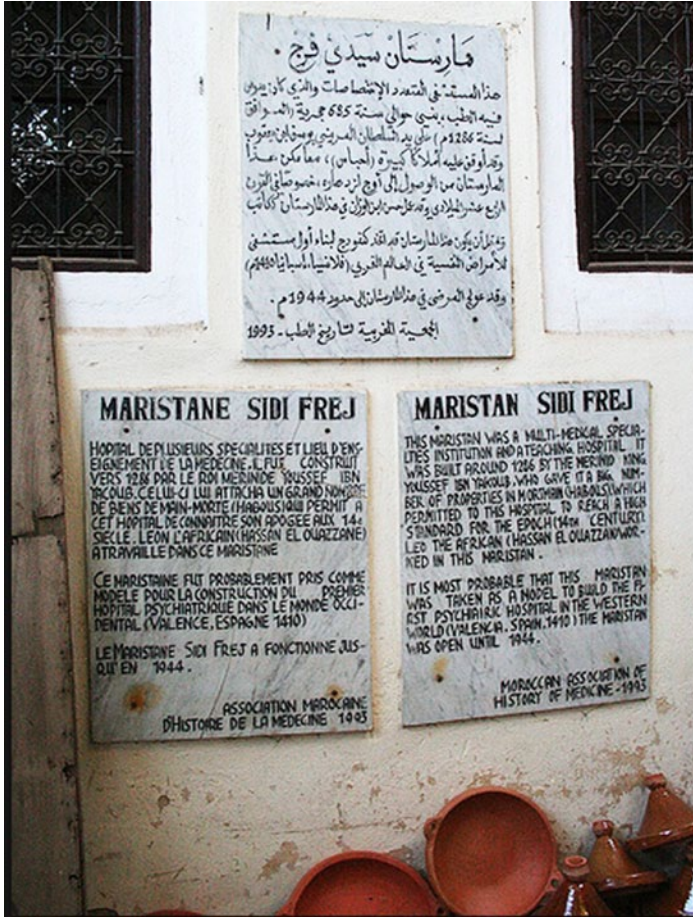 مارستان سيدي فرج
هذا المستشفى المتعدد الإختصاصات والذي كان يدرس
فيه الطب، بني حوالي سنة 685 هجرية (الموافق
لسنة 1286م) على يد السلطان المريني يوسف ابن يعقوب
وقد أوقف عليه أملاكا كبيرة (أحباس)، مما مكن هذا
المارستان من الوصول إلى أوج ازدهاره، خصوصا في القرن
الرابع عشر الميلادي وقد عمل حسن ابن الوزان في هذا المارستان ككاتب
أن يكون هذا المارستان قد اتخذ كنموذج لبناء أول مستشفى
للأمراض النفسية في العالم الغربي (فلانسيا، إسبانيا 1410م)
وقد عولج المرضى في هذا المارستان إلى حدود 1944م.
الجمعية المغربية لتاريخ الطب - 1993
MARISTANE SIDI FREJ
HOPITAL DE PLUSIEURS SPECIALITES ET LIEU D'ENS-
EIGNEMENT DE LA MEDECINE. IL FUT CONSTRUIT
VERS 1286 PAR LE ROI MERINIDE YOUSSEF IBN
YACOUB. CELUI-CI LUI ATTACHA UN GRAND NOMBRE
DE BIENS DE MAIN-MORTE (HABOUS) QUI PERMIT A
CET HOPITAL DE CONNAITRE SON APOGEE AUX 14e
SIECLE. LEON L'AFRICAIN (HASSAN EL OUAZZANE)
A TRAVAILLE DANS CE MARISTANE
CE MARISTAINE FUT PROBABLEMENT PRIS COMME
MODELE POUR LA CONSTRUCTION DU PREMIER
HOPITAL PSYCHIATRIQUE DANS LE MONDE OCCI-
DENTAL (VALENCE, ESPAGNE 1410)
LE MARISTANE SIDI FREJ A FONCTIONNE JUS-
QU'EN 1944.
ASSOCIATION MAROCAINE
D'HISTOIRE DE LA MEDECINE 1993
MARISTAN SIDI FREJ
THIS MARISTAN WAS A MULTI-MEDICAL SPECIA-
LTIES INSTITUTION AND A TEACHING HOSPITAL IT
WAS BUILT AROUND 1286 BY THE MERINID KING
YOUSSEF IBN YAKOUB. WHO GAVE IT A BIG NUM-
BER OF PROPERTIES IN MORTMAIN (HABOUS), WHICH
PERMITTED TO THIS HOSPITAL TO REACH A HIGH
STANDARD FOR THE EPOCH (14TH CENTURY).
LEO THE AFRICAN (HASSAN EL OUAZZAN) WOR-
KED IN THIS MARISTAN.
IT IS MOST PROBABLE THAT THIS MARISTAN
WAS TAKEN AS A MODEL TO BUILD THE FI-
RST PSYCHIAIRIC HOSPITAL IN THE WESTERN
WORLD (VALENCIA. SPAIN. 1410) THE MARISTAN
WAS OPEN UNTIL 1944.
MOROCCAN ASSOCIATION OF
HISTORY OF MEDICINE - 1993